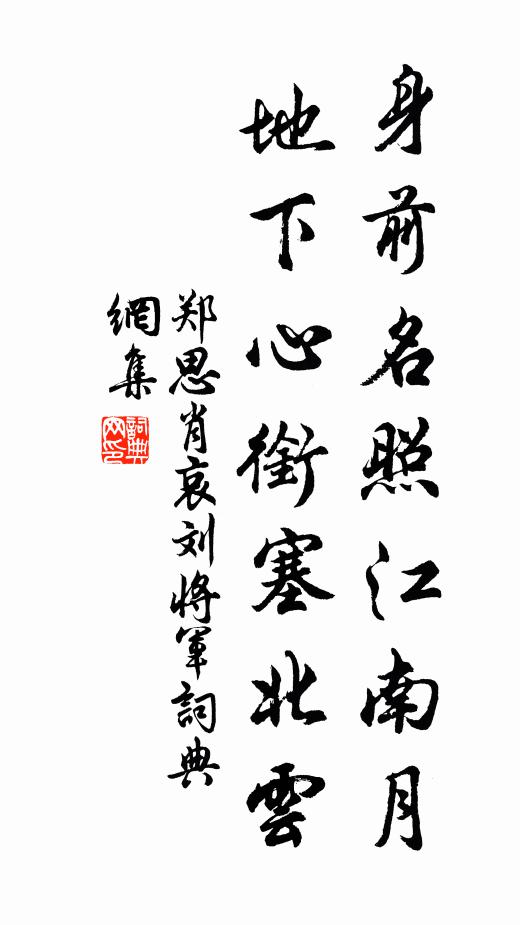 身前名照江南月
地下心銜塞北雲
郑思肖哀刘将軍詞典
網集
詞典
网印